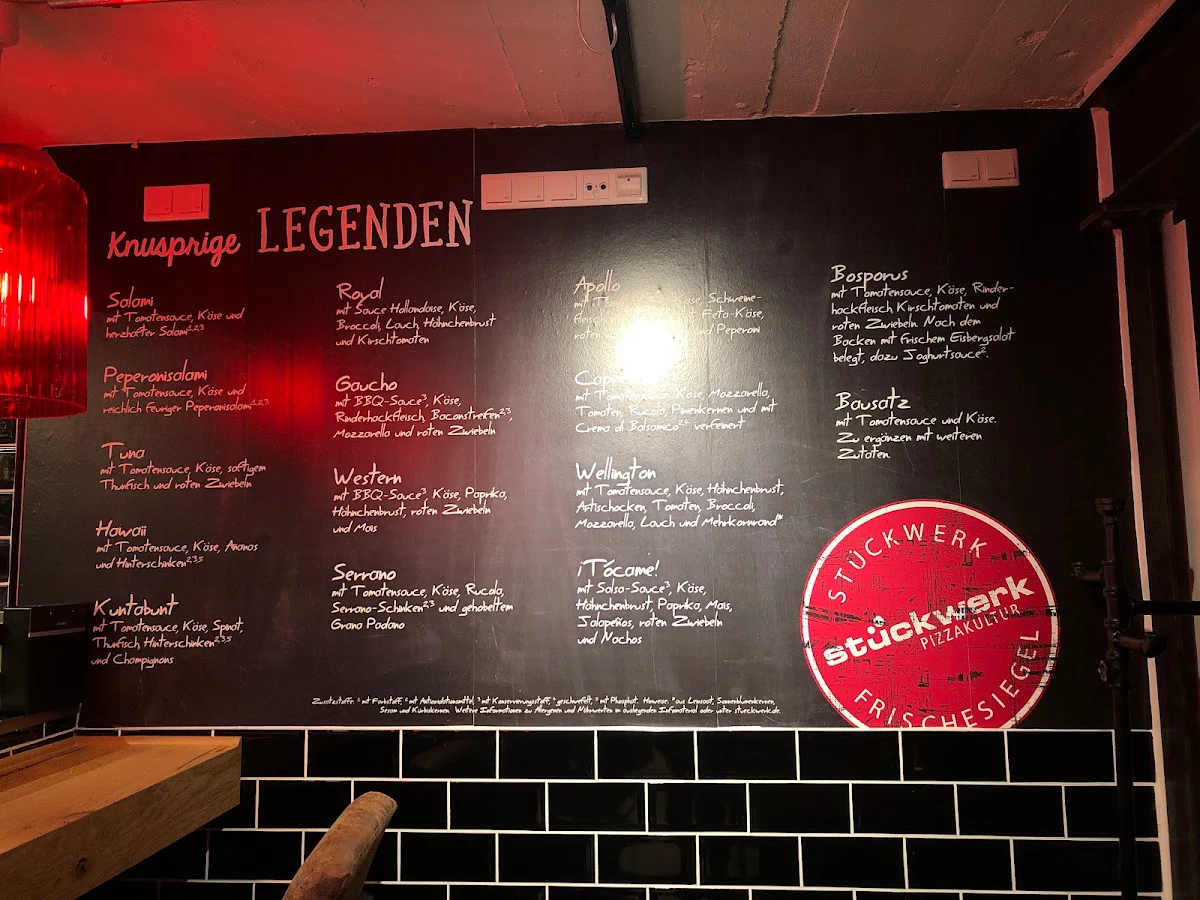 Knusprige LEGENDEN
Salami
mit Tomatensauce, Käse und
herzhafter Salami1,2,3
Peperonisalami
mit Tomatensauce, Käse und
reichlich feuriger Peperonisalami1,2,3
Tuna
mit Tomatensauce, Käse, saftigem
Thunfisch und roten Zwiebeln
Hawaii
mit Tomatensauce, Käse, Ananas
und Hinterschinken2,3,5
Kuntabunt
mit Tomatensauce, Käse, Spinat,
Thunfisch, Hinterschinken2,3,5
und Champignons
Royal
mit Sauce Hollandaise, Käse,
Broccoli, Lauch, Hähnchenbrust
und Kirschtomaten
Gaucho
mit BBQ-Sauce3, Käse,
Rinderhackfleisch, Baconstreifen2,3,
Mozzarella und roten Zwiebeln
Western
mit BBQ-Sauce3, Käse, Paprika,
Hähnchenbrust, roten Zwiebeln
und Mais
Serrano
mit Tomatensauce, Käse, Rucola,
Serrano-Schinken2,3 und gehobeltem
Grana Padano
Apollo
mit Käse, Schweine-
Feta-Käse,
roten und Peperoni
mit Tomatensauce, Käse, Mozzarella,
Tomaten, Rucola, Pinienkernen und mit
Crema di Balsamico verfeinert
Wellington
mit Tomatensauce, Käse, Hähnchenbrust,
Artischocken, Tomaten, Broccoli,
Mozzarella, Lauch und Mehrkornrand
¡Tócame!
mit Salsa-Sauce3, Käse,
Hähnchenbrust, Paprika, Mais,
Jalapeños, roten Zwiebeln
und Nachos
Bosporus
mit Tomatensauce, Käse, Rinder-
hackfleisch, Kirschtomaten und
roten Zwiebeln. Nach dem
Backen mit frischem Eisbergsalat
belegt, dazu Joghurtsauce2.
Bausatz
mit Tomatensauce und Käse.
Zu ergänzen mit weiteren
Zutaten.
STÜCKWERK
stückwerk
PIZZAKULTUR
FRISCHESIEGEL
Zusatzstoffe: 1 mit Farbstoff, 2 mit Antioxidationsmittel, 3 mit Konservierungsstoff, 4 geschwefelt, 5 mit Phosphat. Hinweise: aus Leinsaat, Sonnenblumenkernen,
Sesam und Kürbiskernen. Weitere Informationen zu Allergenen und Nährwerten im ausliegenden Infomaterial oder unter stueckwerk.de.